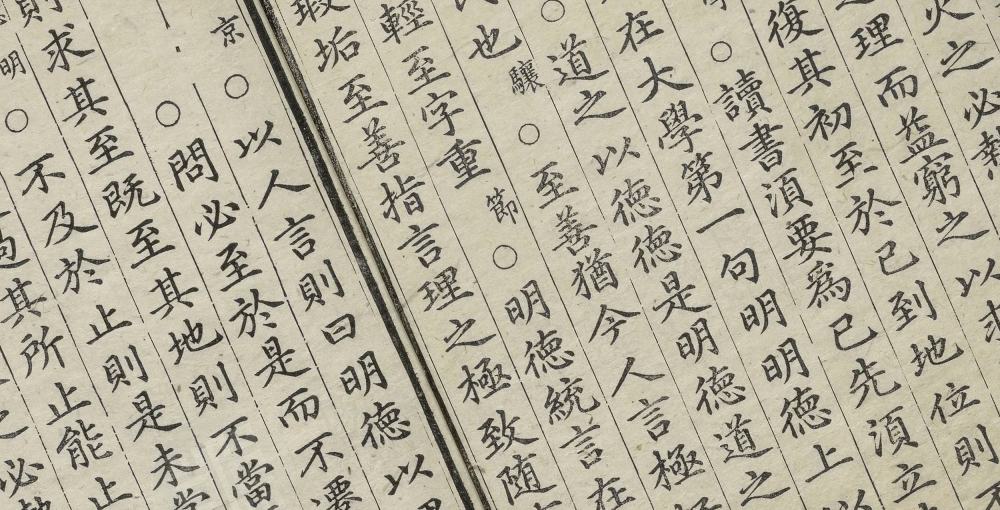 火之必
理而益窮之以求
復其初至於己到地位則不
○讀書須要為己先須立
在大學第一句明明德上以
○道之以德德是明德道之
也驤○至善猶今人言極
輕至字重節○明德統言在
瑕垢至善指言理之極致隨
京○以人言則曰明德以
○問必至於是而不遷
則求其至既至其地則不當
明○不及於止則是未當
過其所止能止
之必